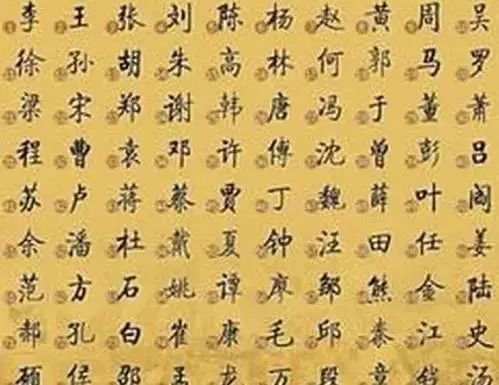 李 王 张 刘 陈 杨 赵 黄 周 吴
徐 孙 胡 朱 高 林 何 郭 马 罗
梁 宋 郑 谢 韩 唐 冯 于 董 萧
程 曹 袁 邓 许 傅 沈 曾 彭 吕
苏 卢 蒋 蔡 贾 丁 魏 薛 叶 阎
余 潘 杜 戴 夏 钟 汪 田 任 姜
范 方 石 姚 谭 廖 邹 熊 金 陆
郝 孔 白 崔 康 毛 邱 秦 江 史
顾 侯 邵 孟 龙 万 段 钱 汤